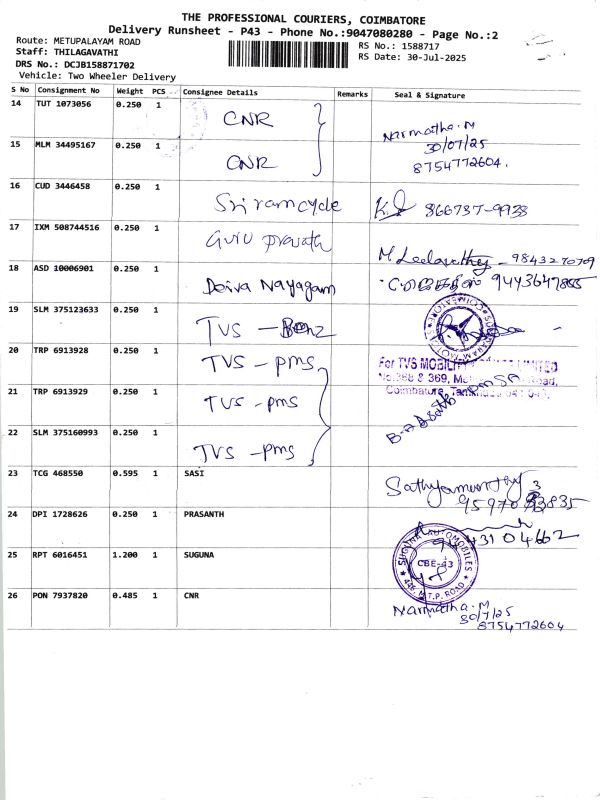 THE PROFESSIONAL COURIERS, COIMBATORE
Delivery Runsheet - P43 - Phone No.:9047080280 - Page No.:2
Route: METUPALAYAM ROAD
RS No.: 1588717
Staff: THILAGAVATHI
RS Date: 30-Jul-2025
DRS No.: DCJB158871702
Vehicle: Two Wheeler Delivery
S No Consignment No Weight PCS Consignee Details Remarks Seal & Signature
14 TUT 1073056 0.250 1 CNR
Narmatha.M
30/07/25
8754772604.
15 MLM 34495167 0.250 1 CNR
16 CUD 3446458 0.250 1 Sri ram cycle 866737-9938
17 IXM 508744516 0.250 1 Guru Prasath
M. Leelavathy - 9843270709
18 ASD 10006901 0.250 1 Deiva Nayagam 9443647855
19 SLM 375123633 0.250 1 TVS - Benz
20 TRP 6913928 0.250 1 TVS - pms
For TVS MOBILITY LIMITED
No.368 & 369, Road,
Coimbatore, Tamilnadu
21 TRP 6913929 0.250 1 TVS - pms
22 SLM 375160993 0.250 1 TVS - pms
23 TCG 468550 0.595 1 SASI
Sathyamoorthy
24 DPI 1728626 0.250 1 PRASANTH
43104662
25 RPT 6016451 1.200 1 SUGUNA
SUGUNA AUTOMOBILES
CBE-43
446, M.T.P. ROAD
26 PON 7937820 0.485 1 CNR
Narmatha.M
30/7/25
8754772604